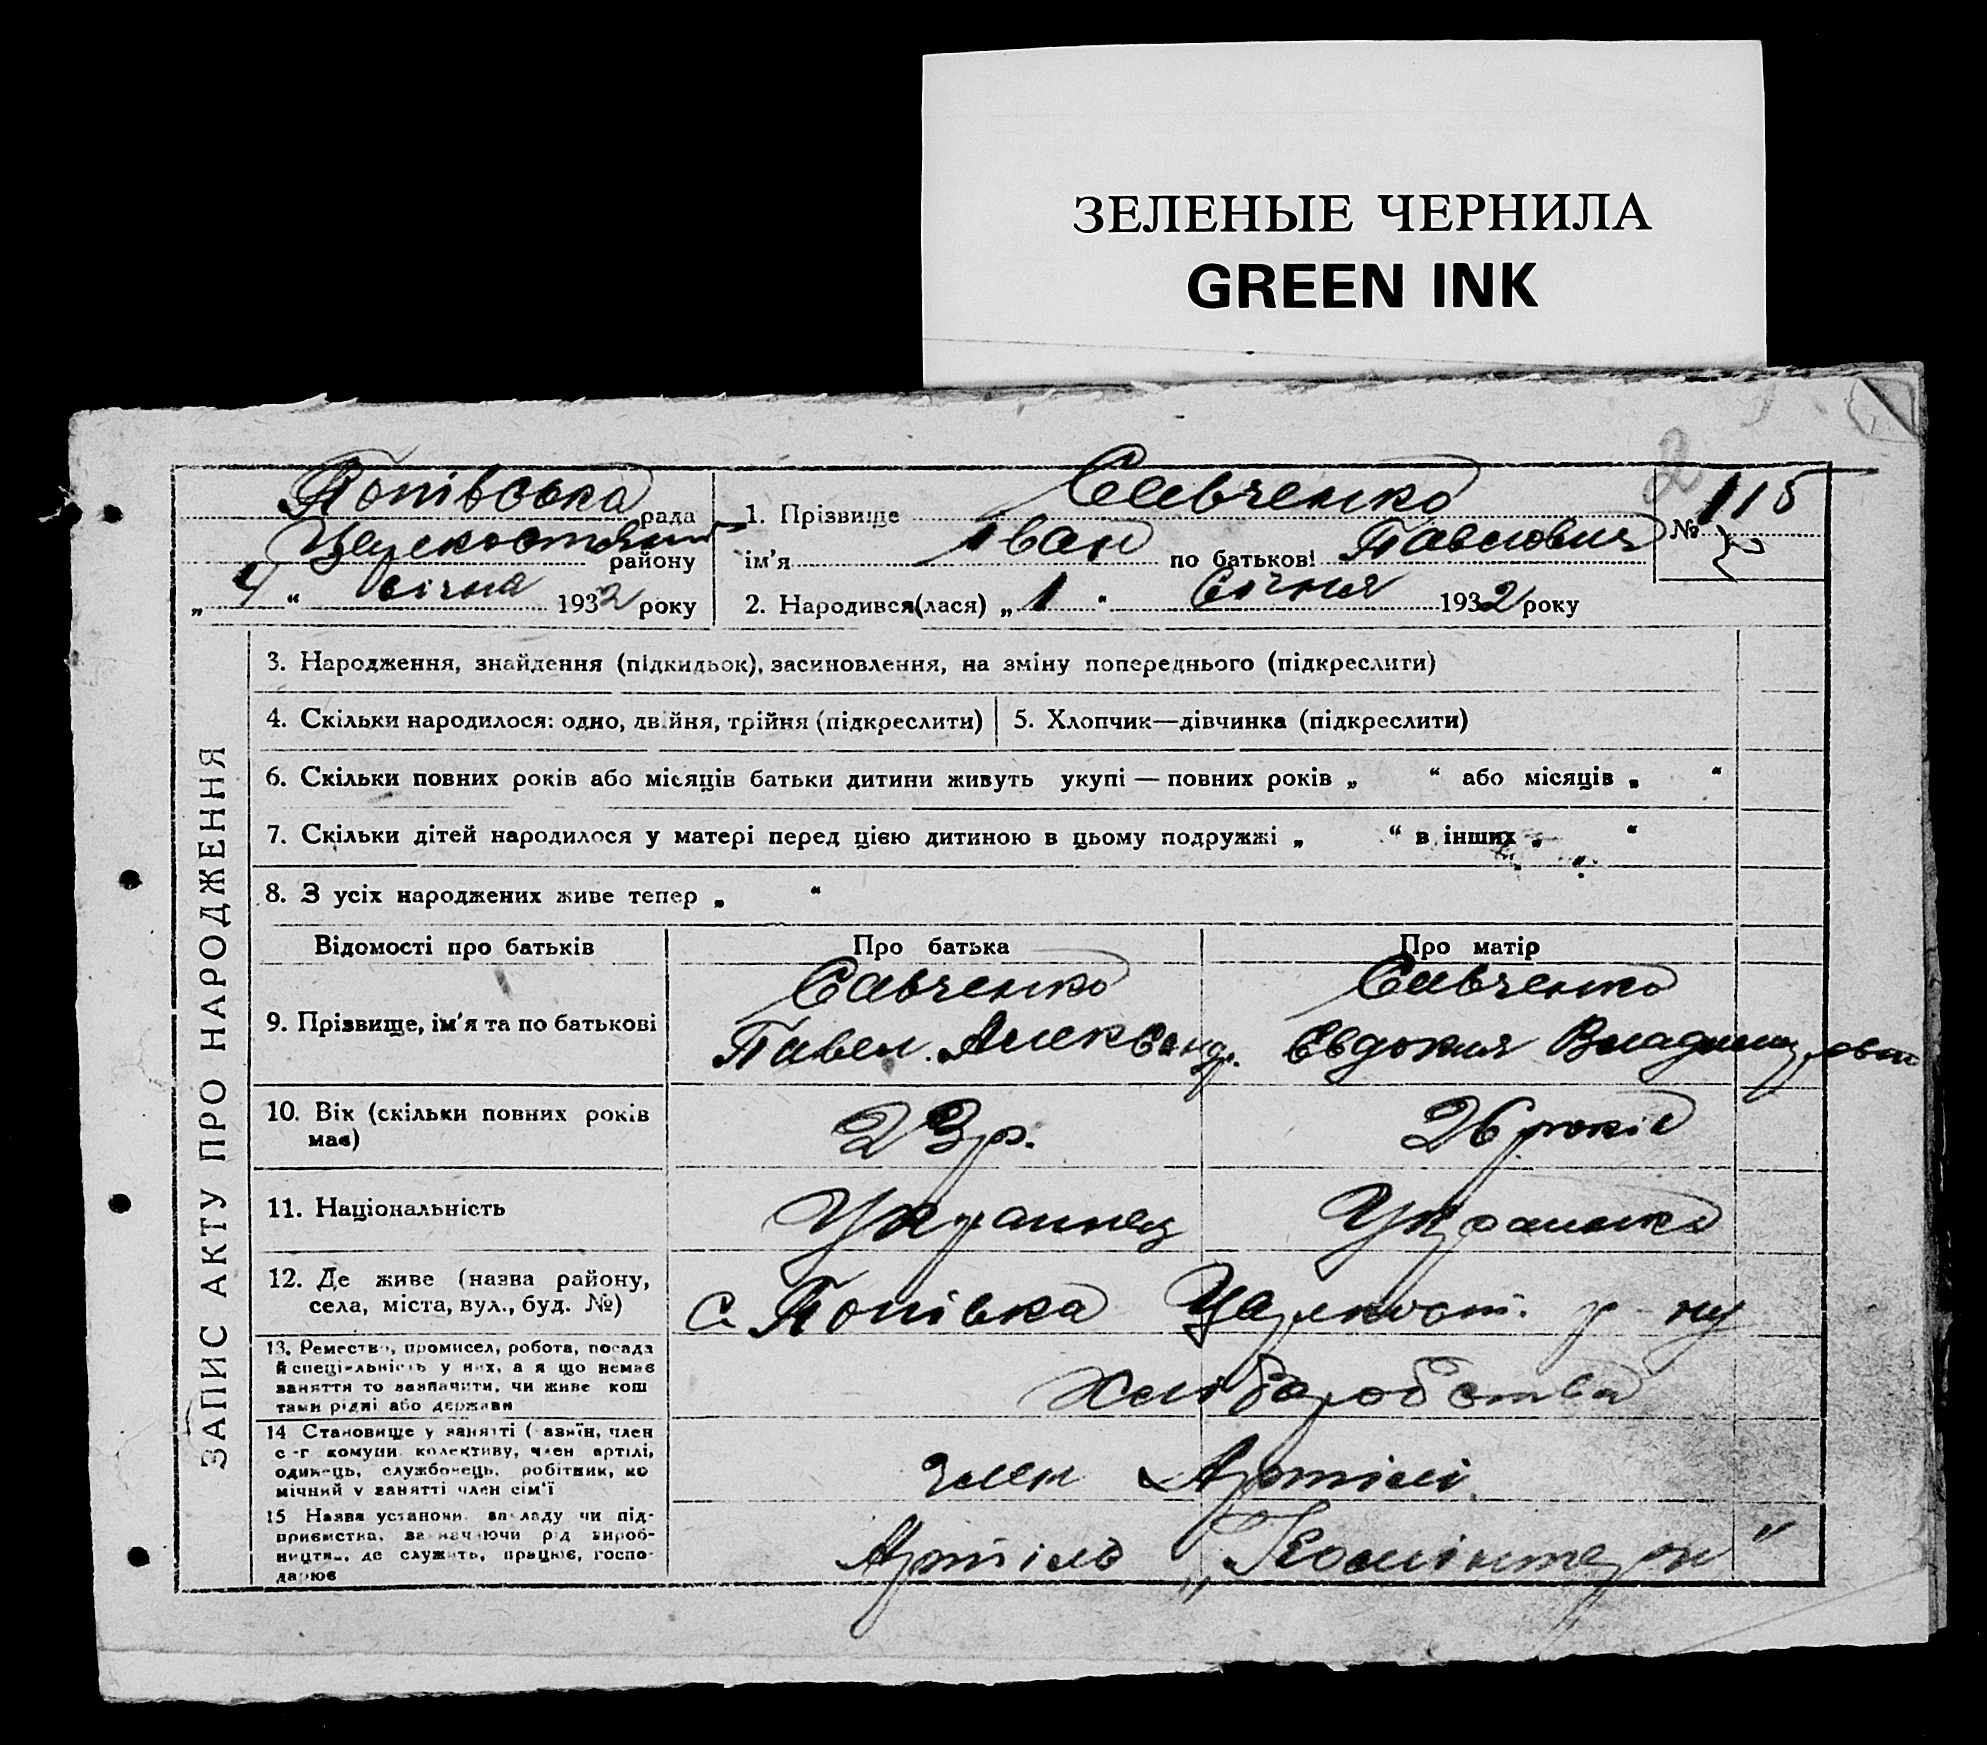 ЗЕЛЕНЫЕ ЧЕРНИЛА
GREEN INK
2
Попівська рада
району
„ 4 “ січня 1932 року
1. Прізвище Савченко
ім'я Іван по батькові Павлович
№ 115
2. Народився(лася) „ 1 “ Січня 1932 року
ЗАПИС АКТУ ПРО НАРОДЖЕННЯ
3. Народження, знайдення (підкидьок), засиновлення, на зміну попереднього (підкреслити)
4. Скільки народилося: одно, двійня, трійня (підкреслити)
5. Хлопчик—дівчинка (підкреслити)
6. Скільки повних років або місяців батьки дитини живуть укупі — повних років „ “ або місяців „ “
7. Скільки дітей народилося у матері перед цією дитиною в цьому подружжі „ “ в інших „ “
8. З усіх народжених живе тепер „ “
Відомості про батьків
Про батька
Про матір
9. Прізвище, ім'я та по батькові
Савченко
Павел. Александ.
Савченко
Евдокия
10. Вік (скільки повних років
має)
23 р.
26 років
11. Національність
Украинец
Украинка
12. Де живе (назва району,
села, міста, вул., буд. №)
с. Попівка р-ну
13. Ремество, промисел, робота, посада
й спеціяльність у них, а я що немає
заняття то зазначити, чи живе кош
тами рідні або держави
Хліборобства
14 Становище у занятті (хазяїн, член
с-г комуни, колективу, член артілі,
одинець, службовець, робітник, по
мічний у занятті член сім'ї
член Артілі
15 Назва установи, закладу чи під-
приємства, зазначаючи рід вироб-
ництва, де служить, працює, госпо-
дарює
Артіль „Комінтерн"